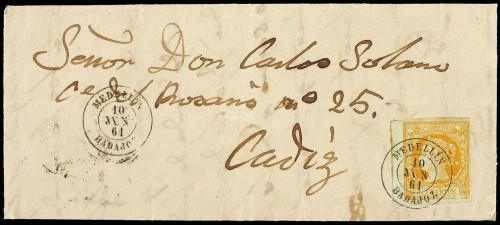 Señor Don Carlos Solano
Rosario nº 25.
Cadiz
MEDELLIN
10
JUN
61
BADAJOZ
MEDELLIN
10
JUN
61
BADAJOZ